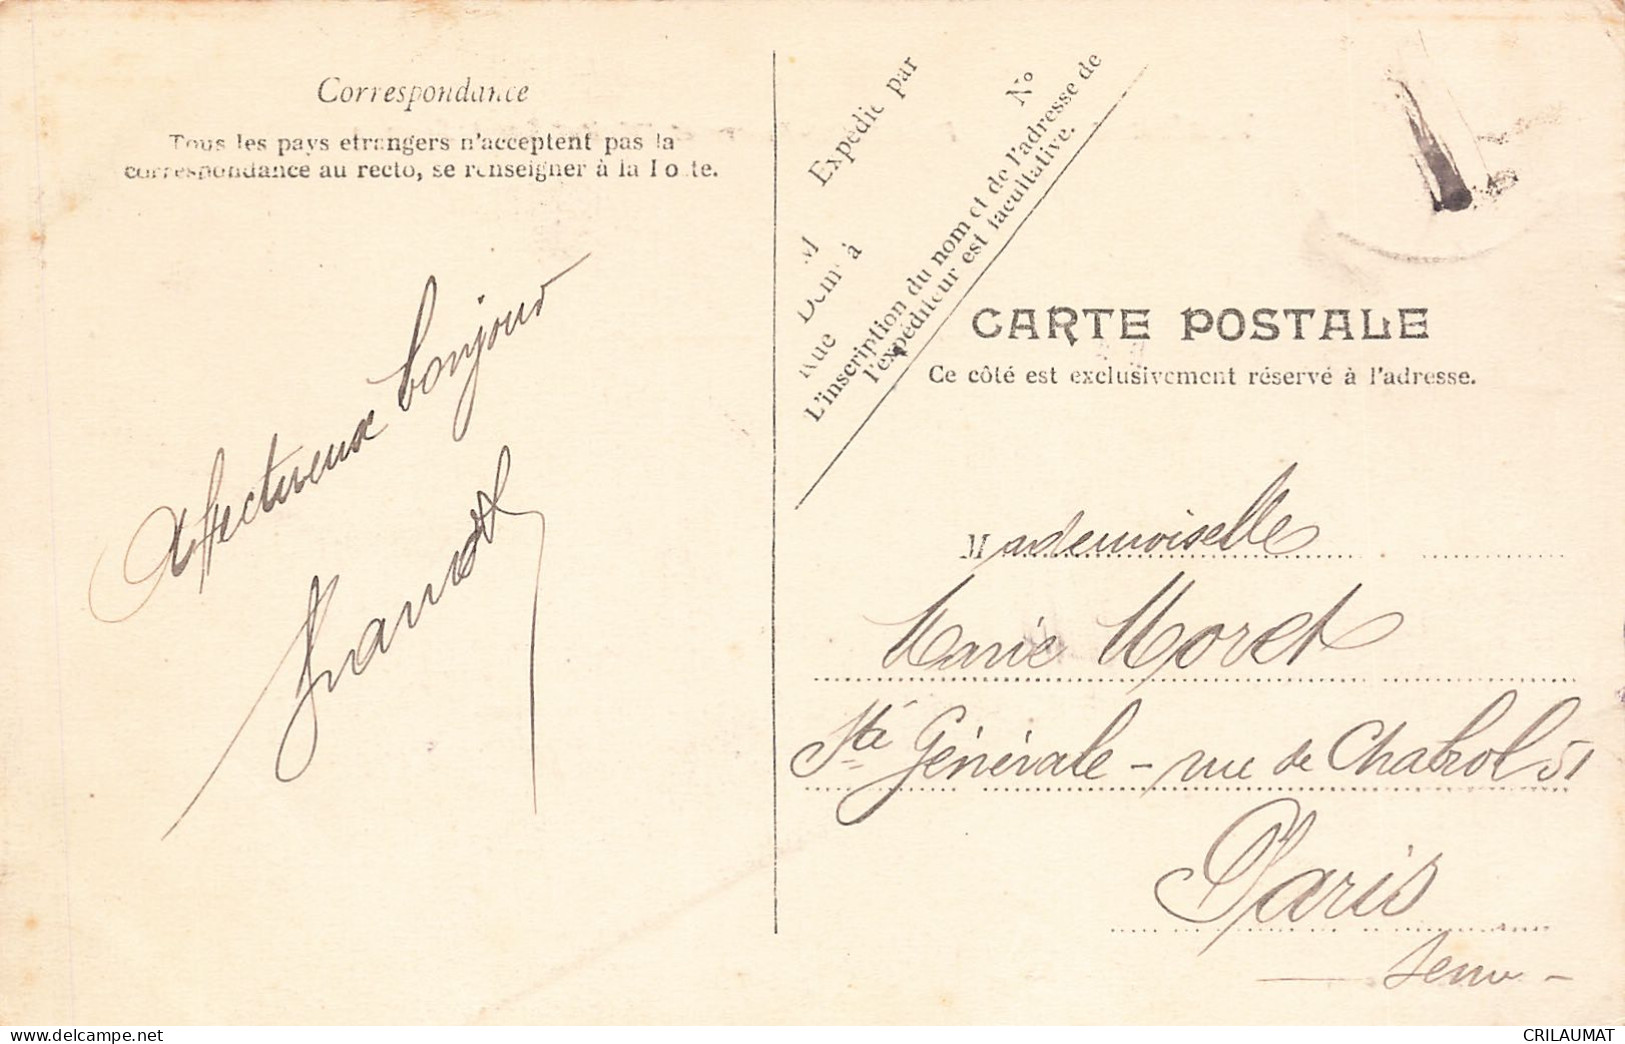 Correspondance
Tous les pays etrangers n'acceptent pas la
correspondance au recto, se renseigner à la Poste.
Affectueux bonjour
Expédié par
M
Demt à
Rue
No
L'inscription du nom et de l'adresse de
l'expéditeur est facultative.
CARTE POSTALE
Ce côté est exclusivement réservé à l'adresse.
Mademoiselle
Marie Moret
Sté Générale - rue de Chabrol 51
Paris
Seine -
delcampe.net
CRILAUMAT